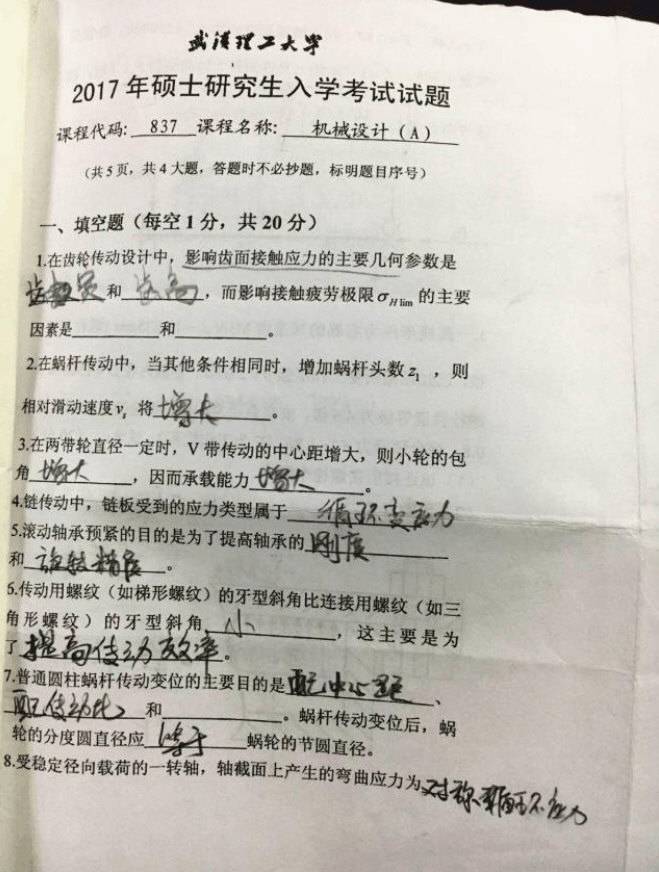 武汉理工大学
2017年硕士研究生入学考试试题
课程代码: 837 课程名称: 机械设计（A）
（共5页，共4大题，答题时不必抄题，标明题目序号）
一、填空题（每空1分，共20分）
1.在齿轮传动设计中，影响齿面接触应力的主要几何参数是
和 齿高，而影响接触疲劳极限σHlim的主要
因素是________和________。
2.在蜗杆传动中，当其他条件相同时，增加蜗杆头数z1，则
相对滑动速度vs将 增大 。
3.在两带轮直径一定时，V带传动的中心距增大，则小轮的包
角 增大 ，因而承载能力 增大 。
4.链传动中，链板受到的应力类型属于 循环变应力
5.滚动轴承预紧的目的是为了提高轴承的 刚度
和 旋转精度 。
6.传动用螺纹（如梯形螺纹）的牙型斜角比连接用螺纹（如三
角形螺纹）的牙型斜角 小 ，这主要是为
了 提高传动效率。
7.普通圆柱蜗杆传动变位的主要目的是 配中心距 、
配传动比 和________。蜗杆传动变位后，蜗
轮的分度圆直径应 等于 蜗轮的节圆直径。
8.受稳定径向载荷的一转轴，轴截面上产生的弯曲应力为 对称循环应力